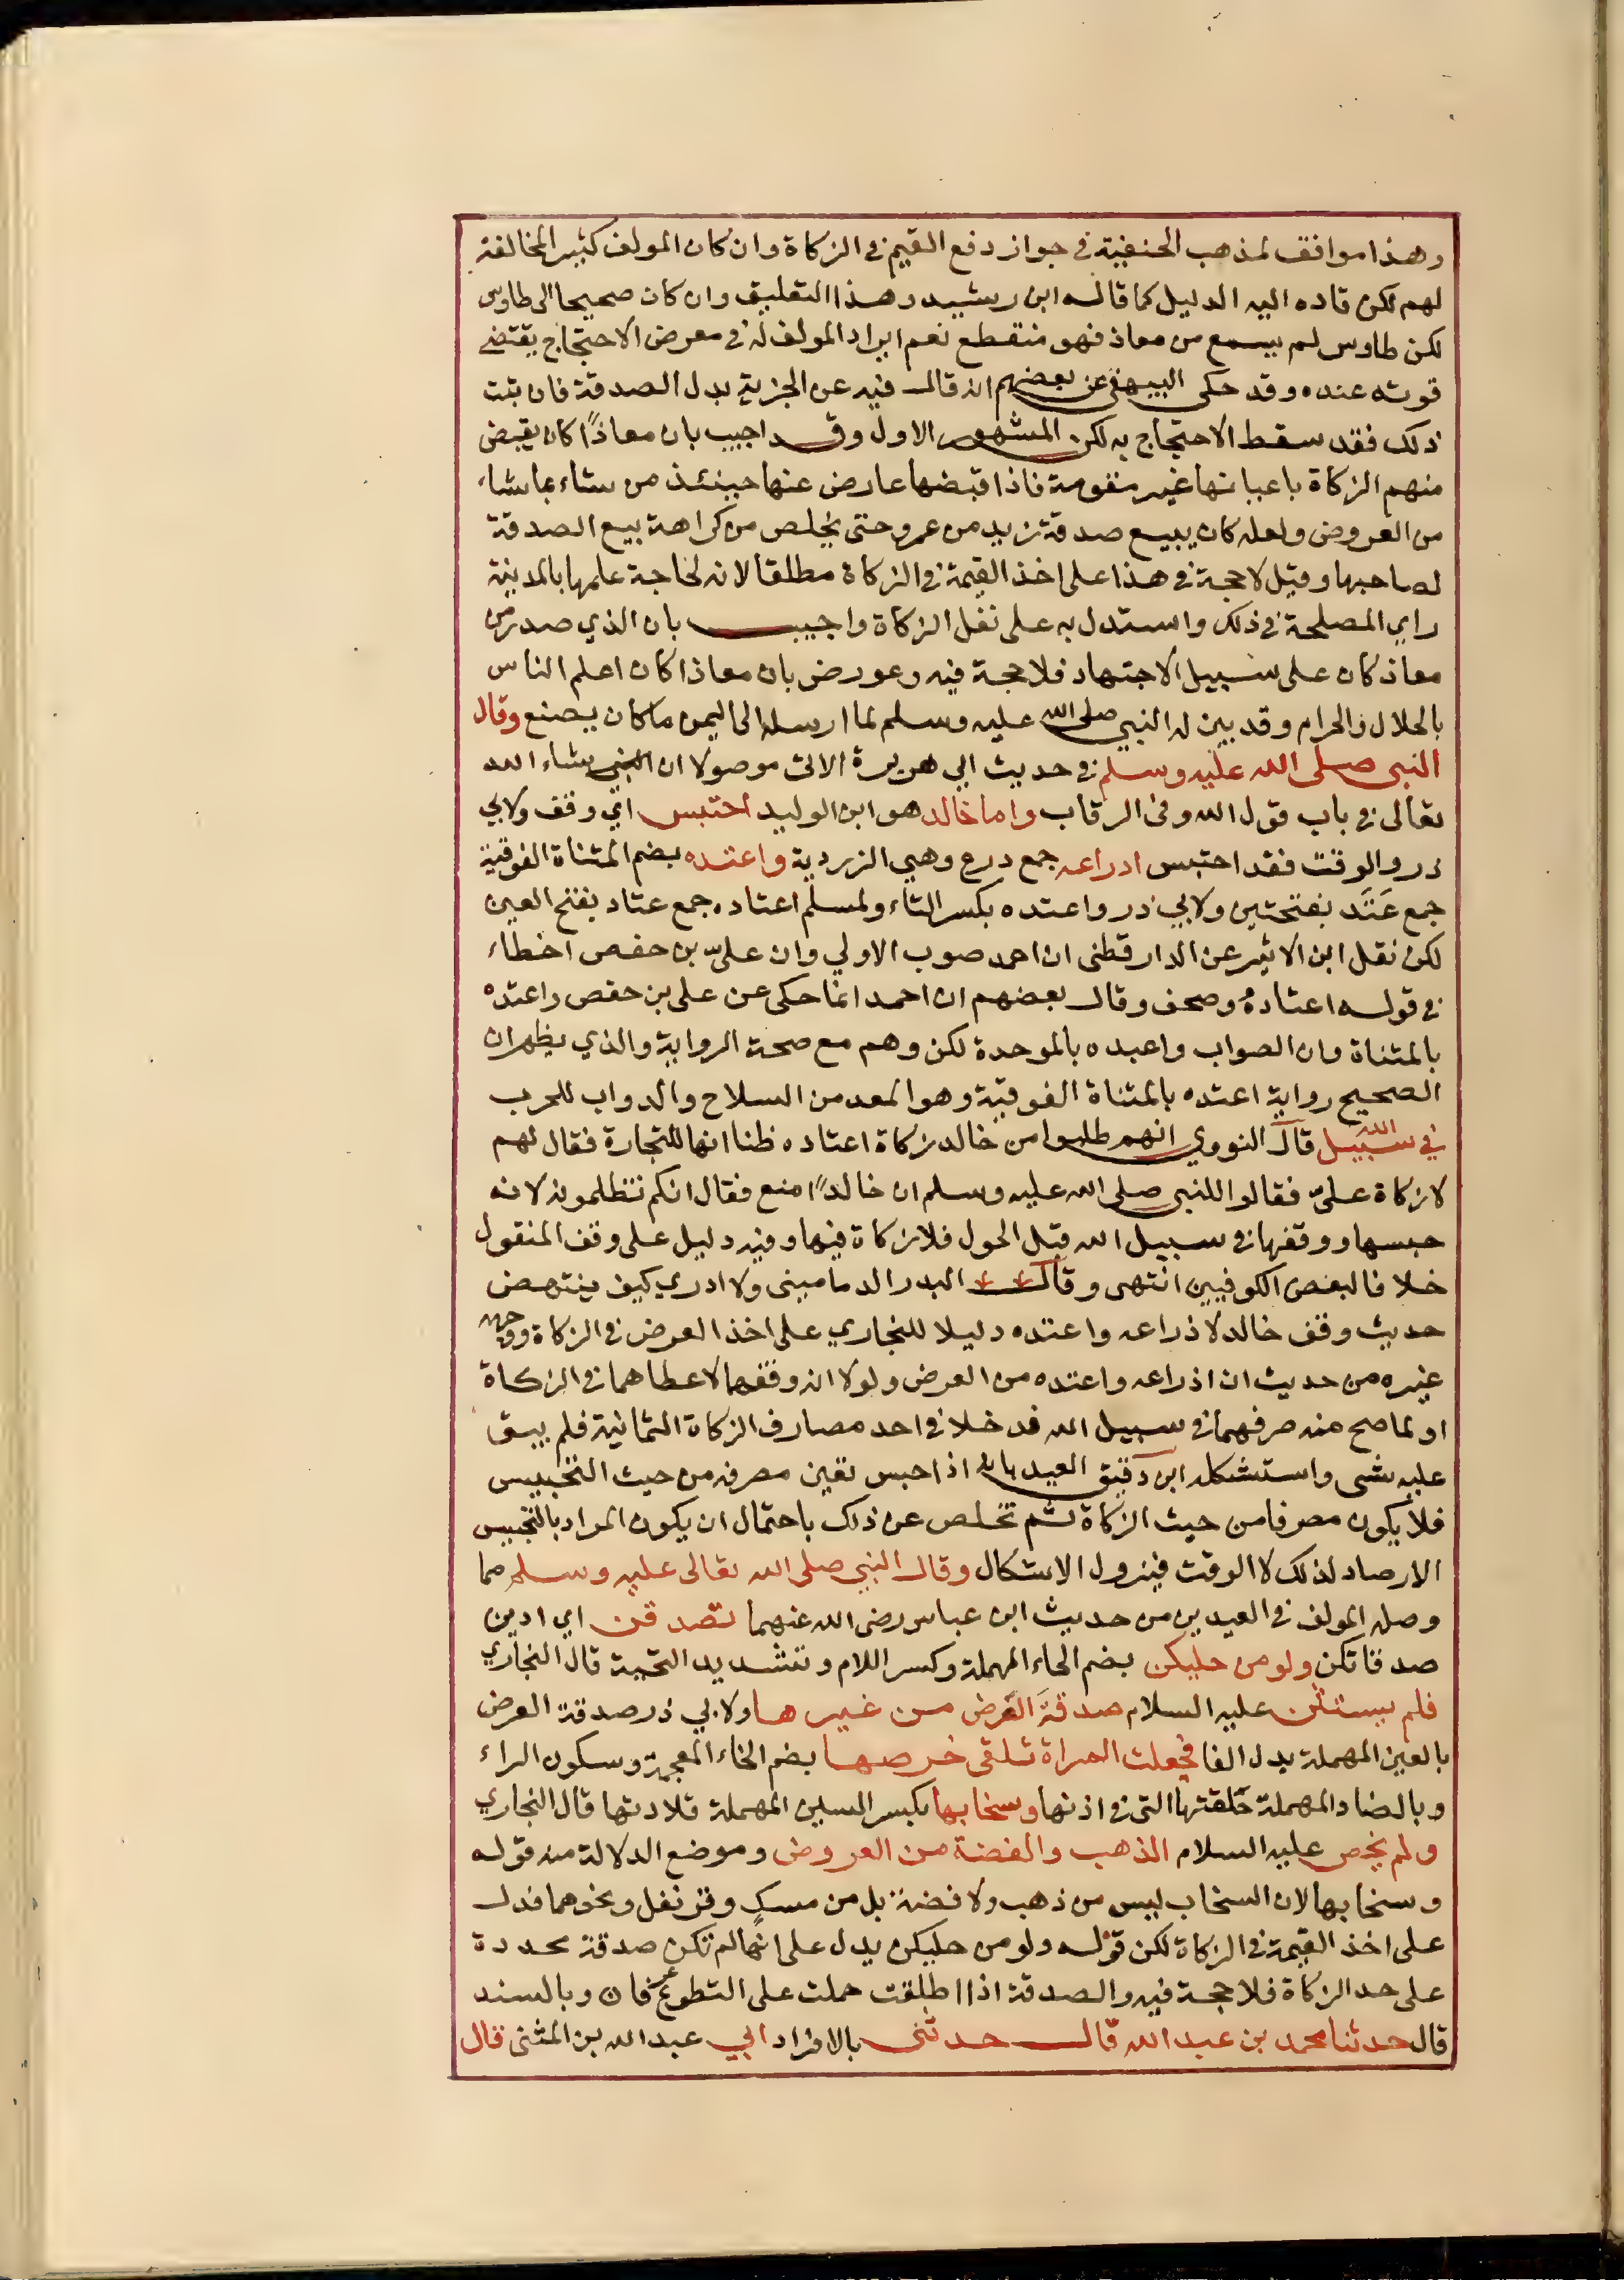 وهذا موافق لمذهب الحنفية في جواز دفع القيم في الزكاة وان كان المولف كثير المخالفة
لهم لكن قاده اليه الدليل كما قاله ابن رشيد وهذا التعليق وان كان صحيحا الى طاوس
لكن طاوس لم يسمع من معاذ فهو منقطع نعم ايراد المولف له في معرض الاحتجاج يقتضي
قوته عنده وقد حكى البيهقي عن بعضهم انه قال فيه عن الجزية بدل الصدقة فان ثبت
ذلك فقد سقط الاحتجاج به لكن المشهور الاول وقد اجيب بان معاذًا كان يقبض
منهم الزكاة باعيانها غير مقومة فاذا قبضها عارض عنها حينئذ من شاء بما شاء
من العروض ولعله كان يبيع صدقة زيد من عمرو حتى يخلص من كراهة بيع الصدقة
لصاحبها وقيل لا حجة في هذا على اخذ القيمة في الزكاة مطلقا لانه لحاجة علمها بالمدينة
راي المصلحة في ذلك واستدل به على نقل الزكاة واجيب بان الذي صدر من
معاذ كان على سبيل الاجتهاد فلا حجة فيه وعورض بان معاذا كان اعلم الناس
بالحلال والحرام وقد بين له النبي صلى الله عليه وسلم لما ارسله الى اليمن ما كان يصنع وقال
النبي صلى الله عليه وسلم في حديث ابي هريرة الاتي موصولا ان شاء الله
تعالى في باب قول الله وفي الرقاب واما خالد هو ابن الوليد احتبس اي وقف ولابي
ذر والوقت فقد احتبس ادراعه جمع درع وهي الزردية واعتده بضم المثناة الفوقية
جمع عَتَد بفتحتين ولابي ذر واعتده بكسر التاء ولمسلم اعتاده جمع عتاد بفتح العين
لكن نقل ابن الاثير عن الدارقطني ان احمد صوب الاولي وان علي بن حفص اخطاء
في قوله اعتاده وصحف وقال بعضهم ان احمد انما حكى عن علي بن حفص واعتده
بالمثناة وان الصواب واعبده بالموحدة لكن وهم مع صحة الرواية والذي يظهر ان
الصحيح رواية اعتده بالمثناة الفوقية وهو المعد من السلاح والدواب للحرب
في سبيل الله قال النووي انهم طلبوا من خالد زكاة اعتاده ظنا انها للتجارة فقال لهم
لا زكاة عليّ فقالوا للنبي صلى الله عليه وسلم ان خالدًا منع فقال انكم تظلمونه لانه
حبسها ووقفها في سبيل الله قبل الحول فلا زكاة فيها وفيه دليل على وقف المنقول
خلافا لبعض الكوفيين انتهى وقال البدر الدماميني ولا ادري كيف ينتهض
حديث وقف خالد لاذراعه واعتده دليلا للبخاري على اخذ العرض في الزكاة ووجهه
غيره من حديث ان اذراعه واعتده من العرض ولولا انه وقفهما لاعطاهما في الزكاة
او لما صح منه صرفهما في سبيل الله فدخلا في احد مصارف الزكاة الثمانية فلم يبق
عليه شي واستشكله ابن دقيق العيد بانه اذا حبس تعين مصرفه من حيث التحبيس
فلا يكون مصرفا من حيث الزكاة ثم تخلص عن ذلك باحتمال ان يكون المراد بالتحبيس
الارصاد لذلك لا الوقف فيزول الاشكال وقال النبي صلى الله تعالى عليه وسلم مما
وصله المولف في العيدين من حديث ابن عباس رضي الله عنهما تصدقن اي ادين
صدقاتكن ولو من حليكن بضم الحاء المهملة وكسر اللام وتشديد التحية قال البخاري
فلم يستثن عليه السلام صدقة الفرض من غيرها ولابي ذر صدقة العرض
بالعين المهملة بدل الفا فجعلت المراة تلقى خرصها بضم الخاء المعجمة وسكون الراء
وبالصاد المهملة حلقتها التي في اذنها وسخابها بكسر السين المهملة قلادتها قال البخاري
ولم يخص عليه السلام الذهب والفضة من العروض وموضع الدلالة منه قوله
وسخابها لان السخاب ليس من ذهب ولا فضة بل من مسك وقرنفل ونحوهما فدل
على اخذ القيمة في الزكاة لكن قوله ولو من حليكن يدل على انها لم تكن صدقة محددة
على حد الزكاة فلا حجة فيه والصدقة اذا اطلقت حملت على التطوع وبالسند
قال حدثنا محمد بن عبد الله قال حدثني بالافراد ابي عبد الله بن المثنى قال